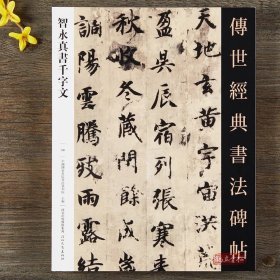 傳世經典書法碑帖
天地玄黄宇宙洪荒
盈昃辰宿列張寒來
秋收冬藏閏餘成歲
調陽雲騰致雨露結
智永真書千字文